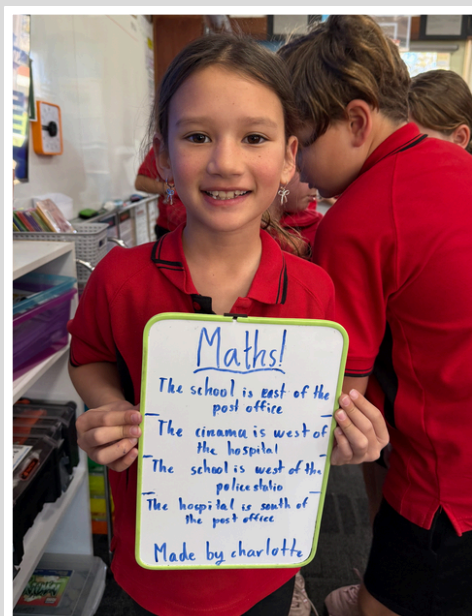 Maths!
The school is east of the
post office
The cinama is west of
the hospital
The school is west of the
policestatio
The hospital is south of
the post office
Made by charlotte